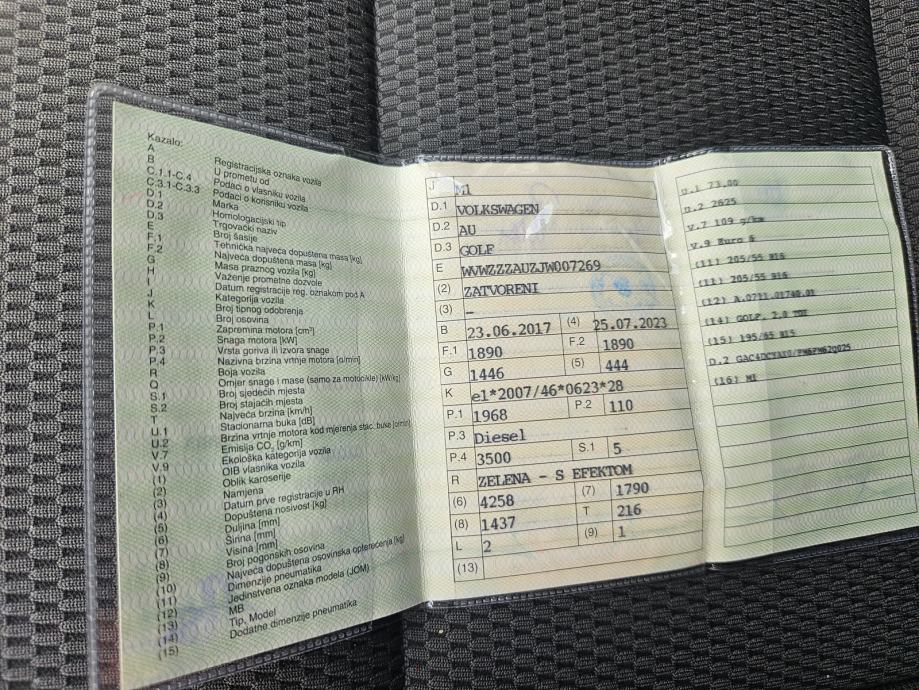 Kazalo:
A Registracijska oznaka vozila
B U prometu od
C.1.1-C.4 Podaci o vlasniku vozila
C.3.1-C.3.3 Podaci o korisniku vozila
D.1 Marka
D.2 Homologacijski tip
D.3 Trgovački naziv
E Broj šasije
F.1 Tehnička najveća dopuštena masa [kg]
F.2 Najveća dopuštena masa [kg]
G Masa praznog vozila [kg]
H Važenje prometne dozvole
I Datum registracije reg. oznakom pod A
J Kategorija vozila
K Broj tipnog odobrenja
L Broj osovina
P.1 Zapremina motora [cm³]
P.2 Snaga motora [kW]
P.3 Vrsta goriva ili izvora snage
P.4 Nazivna brzina vrtnje motora [o/min]
R Boja vozila
Q Omjer snage i mase (samo za motocikle) [kW/kg]
S.1 Broj sjedećih mjesta
S.2 Broj stajaćih mjesta
T Najveća brzina [km/h]
U.1 Stacionarna buka [dB]
U.2 Brzina vrtnje motora kod mjerenja stac. buke [o/min]
V.7 Emisija CO₂ [g/km]
V.9 Ekološka kategorija vozila
(1) OIB vlasnika vozila
(2) Oblik karoserije
(3) Namjena
(4) Datum prve registracije u RH
(5) Dopuštena nosivost [kg]
(6) Duljina [mm]
(7) Širina [mm]
(8) Visina [mm]
(9) Broj pogonskih osovina
(10) Najveća dopuštena osovinska opterećenja [kg]
(11) Dimenzije pneumatika
(12) Jedinstvena oznaka modela (JOM)
(13) MB
(14) Tip, Model
(15) Dodatne dimenzije pneumatika
J M1
D.1 VOLKSWAGEN
D.2 AU
D.3 GOLF
E WVWZZZAUZJW007269
(2) ZATVORENI
(3) –
B 23.06.2017 (4) 25.07.2023
F.1 1890 F.2 1890
G 1446 (5) 444
K e1*2007/46*0623*28
P.1 1968 P.2 110
P.3 Diesel
P.4 3500 S.1 5
R ZELENA - S EFEKTOM
(6) 4258 (7) 1790
(8) 1437 T 216
L 2 (9) 1
(13)
U.1 73,00
U.2 2625
V.7 109 g/km
V.9 Euro 6
(11) 205/55 R16
(11) 205/55 R16
(12) A.0711.01740.01
(14) GOLF, 2,0 TDI
(15) 195/65 R15
D.2
(16) M1